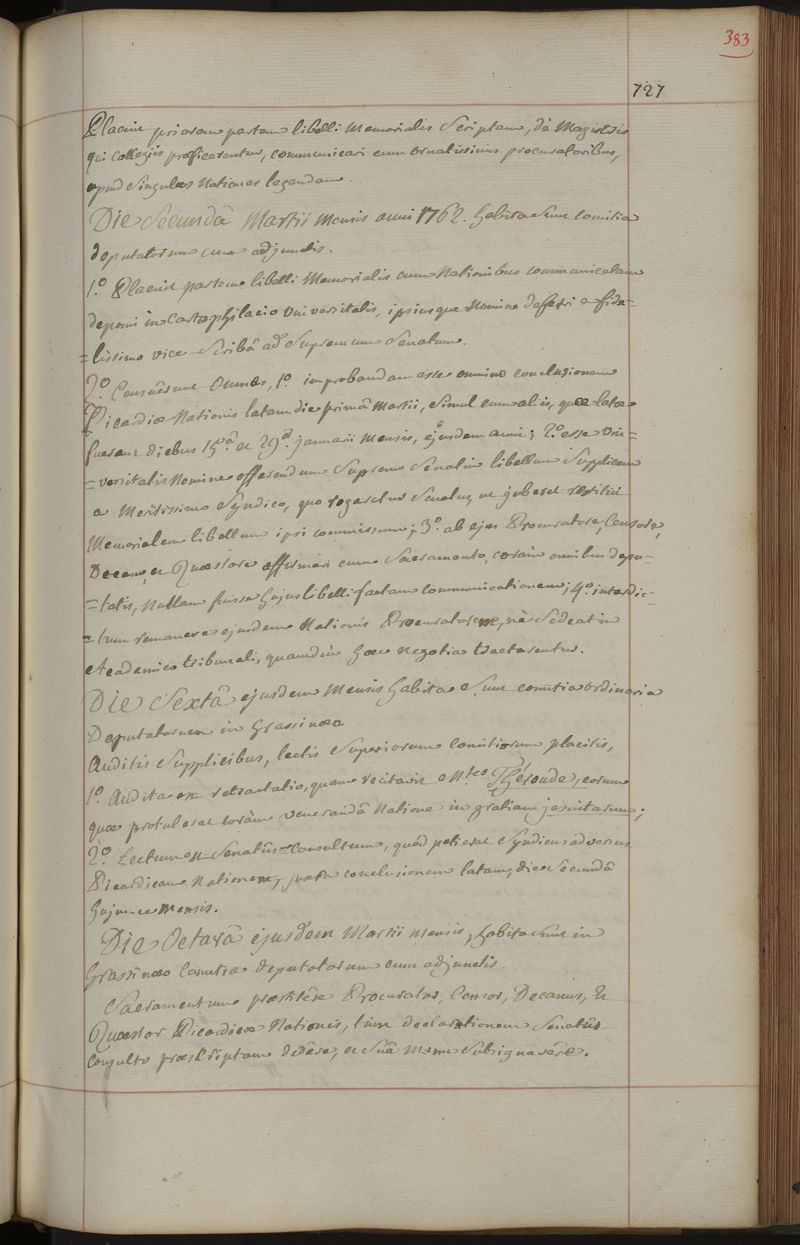 383
727
Placuit priorem partem libelli memorialis Scriptam, de Magistris
qui collegiis præficerentur, communicari cum ornatissimis procuratoribus,
apud Singulas Nationes legendam.
Die Secundâ Martii mensis anni 1762. habita Sunt comitia
deputatorum cum adjunctis.
1.º Placuit partem libelli Memorialis cum Nationibus communicatam
deponi in Cartophilacio Universitatis, ipsiusque Nomine deferri a fide-
=lissimo vice-Scribâ ad Supremum Senatum.
2.º Censuêrunt Omnes, 1.º improbandam esse omnino conclusionem
Picardicæ Nationis latam die primâ Martii, Simul cum aliis, quæ latæ
fuerant diebus 15.â et 29.â januarii mensis, ejusdem anni; 2.º esse Uni=
=versitatis Nomine offerendum Supremo Senatui libellum Supplicem
a Meritissimo Syndico, quo rogaretur Senatus, ut juberet restitui
Memorialem libellum ipsi commissum; 3.º ab ejus Procuratore, Censore,
Decano, et Quæstore affirmari cum Sacramento, coràm omnibus depu-
=tatis, Nullam fuisse hujus libelli factam communicationem; 4.º interdic-
=tum remanere ejusdem Nationis Procuratorem, nè Sedeat in
Academico tribunali, quamdiù hæc negotia tractarentur.
Die Sextâ ejusdem Mensis habita Sunt comitia ordinaria
Deputatorum in Grassinæo
Auditis Supplicibus, lectis Superiorum comitiorum placitis,
1.º Audita est retractatio, quam recitavit M.ter Théroude, eorum
quæ protulerat coràm venerandâ Natione in gratiam jesuitarum;
2.º Lectum est Senatûs-Consultum, quod petierat Syndicus adversus
Picardicam Nationem, juxta conclusionem latam, die Secundâ
hujusce mensis.
Die Octavâ ejusdem Martii mensis, habita Sunt in
Grassinæo Comitia deputatorum cum adjunctis.
Sacramentum præstitêre Procurator, Censor, Decanus, &
Quæstor Picardicæ Nationis, tùm declarationem Senatûs
consulto præscriptam dedêre, et Suâ manu Subsignavêre.